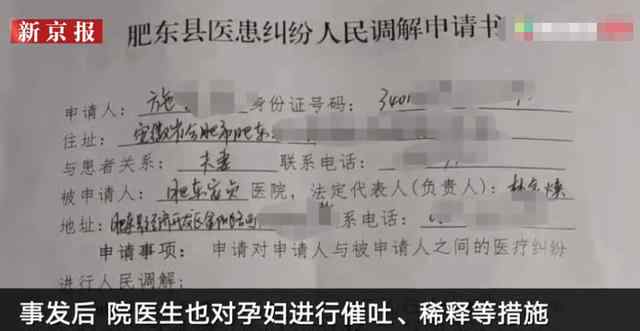 新京报
肥东县医患纠纷人民调解申请书
申请人：施 身份证号码：3401
住址：安徽省合肥市肥东
与患者关系：夫妻 联系电话：
被申请人：肥东家贞医院，法定代表人(负责人)：林
地址：肥东县经济开发区 系电话：
申请事项：申请对申请人与被申请人之间的医疗纠纷
进行人民调解：
事发后 院医生也对孕妇进行催吐、稀释等措施